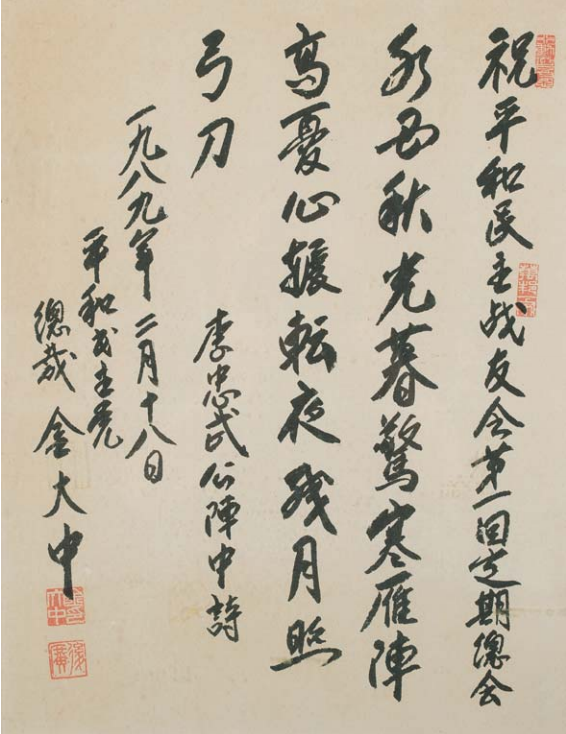 祝平和民主战友会第一回定期總会
水国秋光暮驚寒雁陣
高憂心輾転夜残月照
弓刀
李忠武公陣中詩
一九八九年二月十八日
平和民主党
總裁 金大中
金大中印
後廣